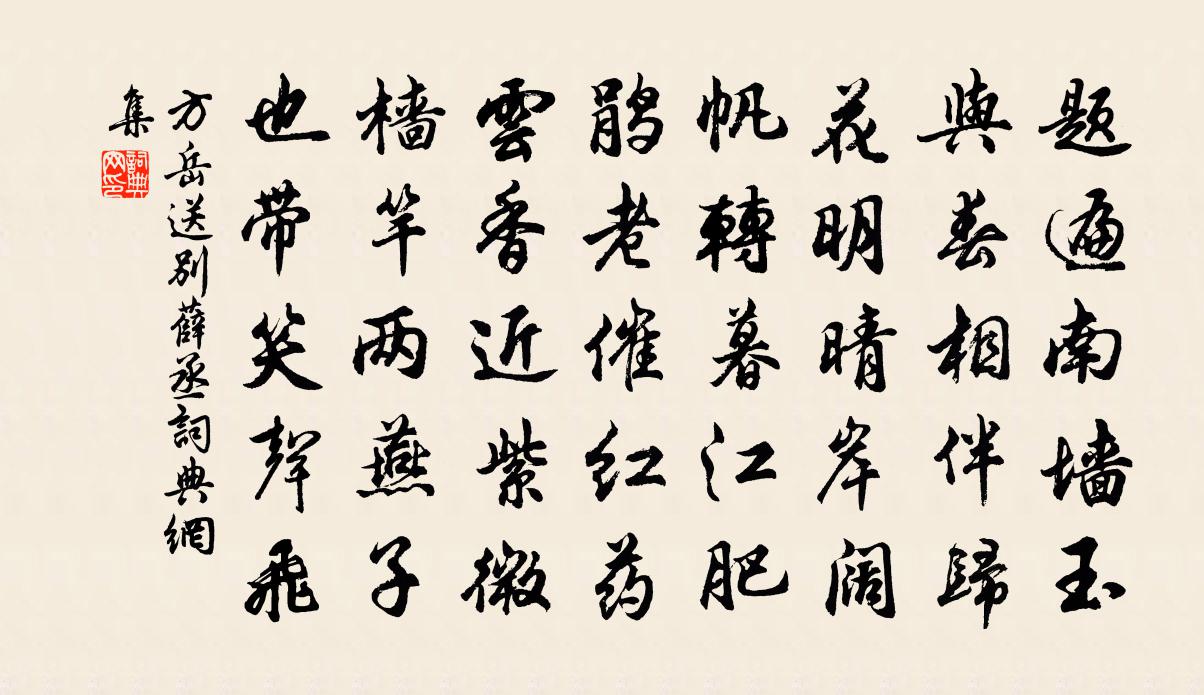 题遍南墙玉
與春相伴歸
花明晴岸阔
帆轉暮江肥
鹃老催红药
雲香近紫微
樯竿两燕子
也带笑聲飛
方岳送别薛丞詞典網
集
詞典網印